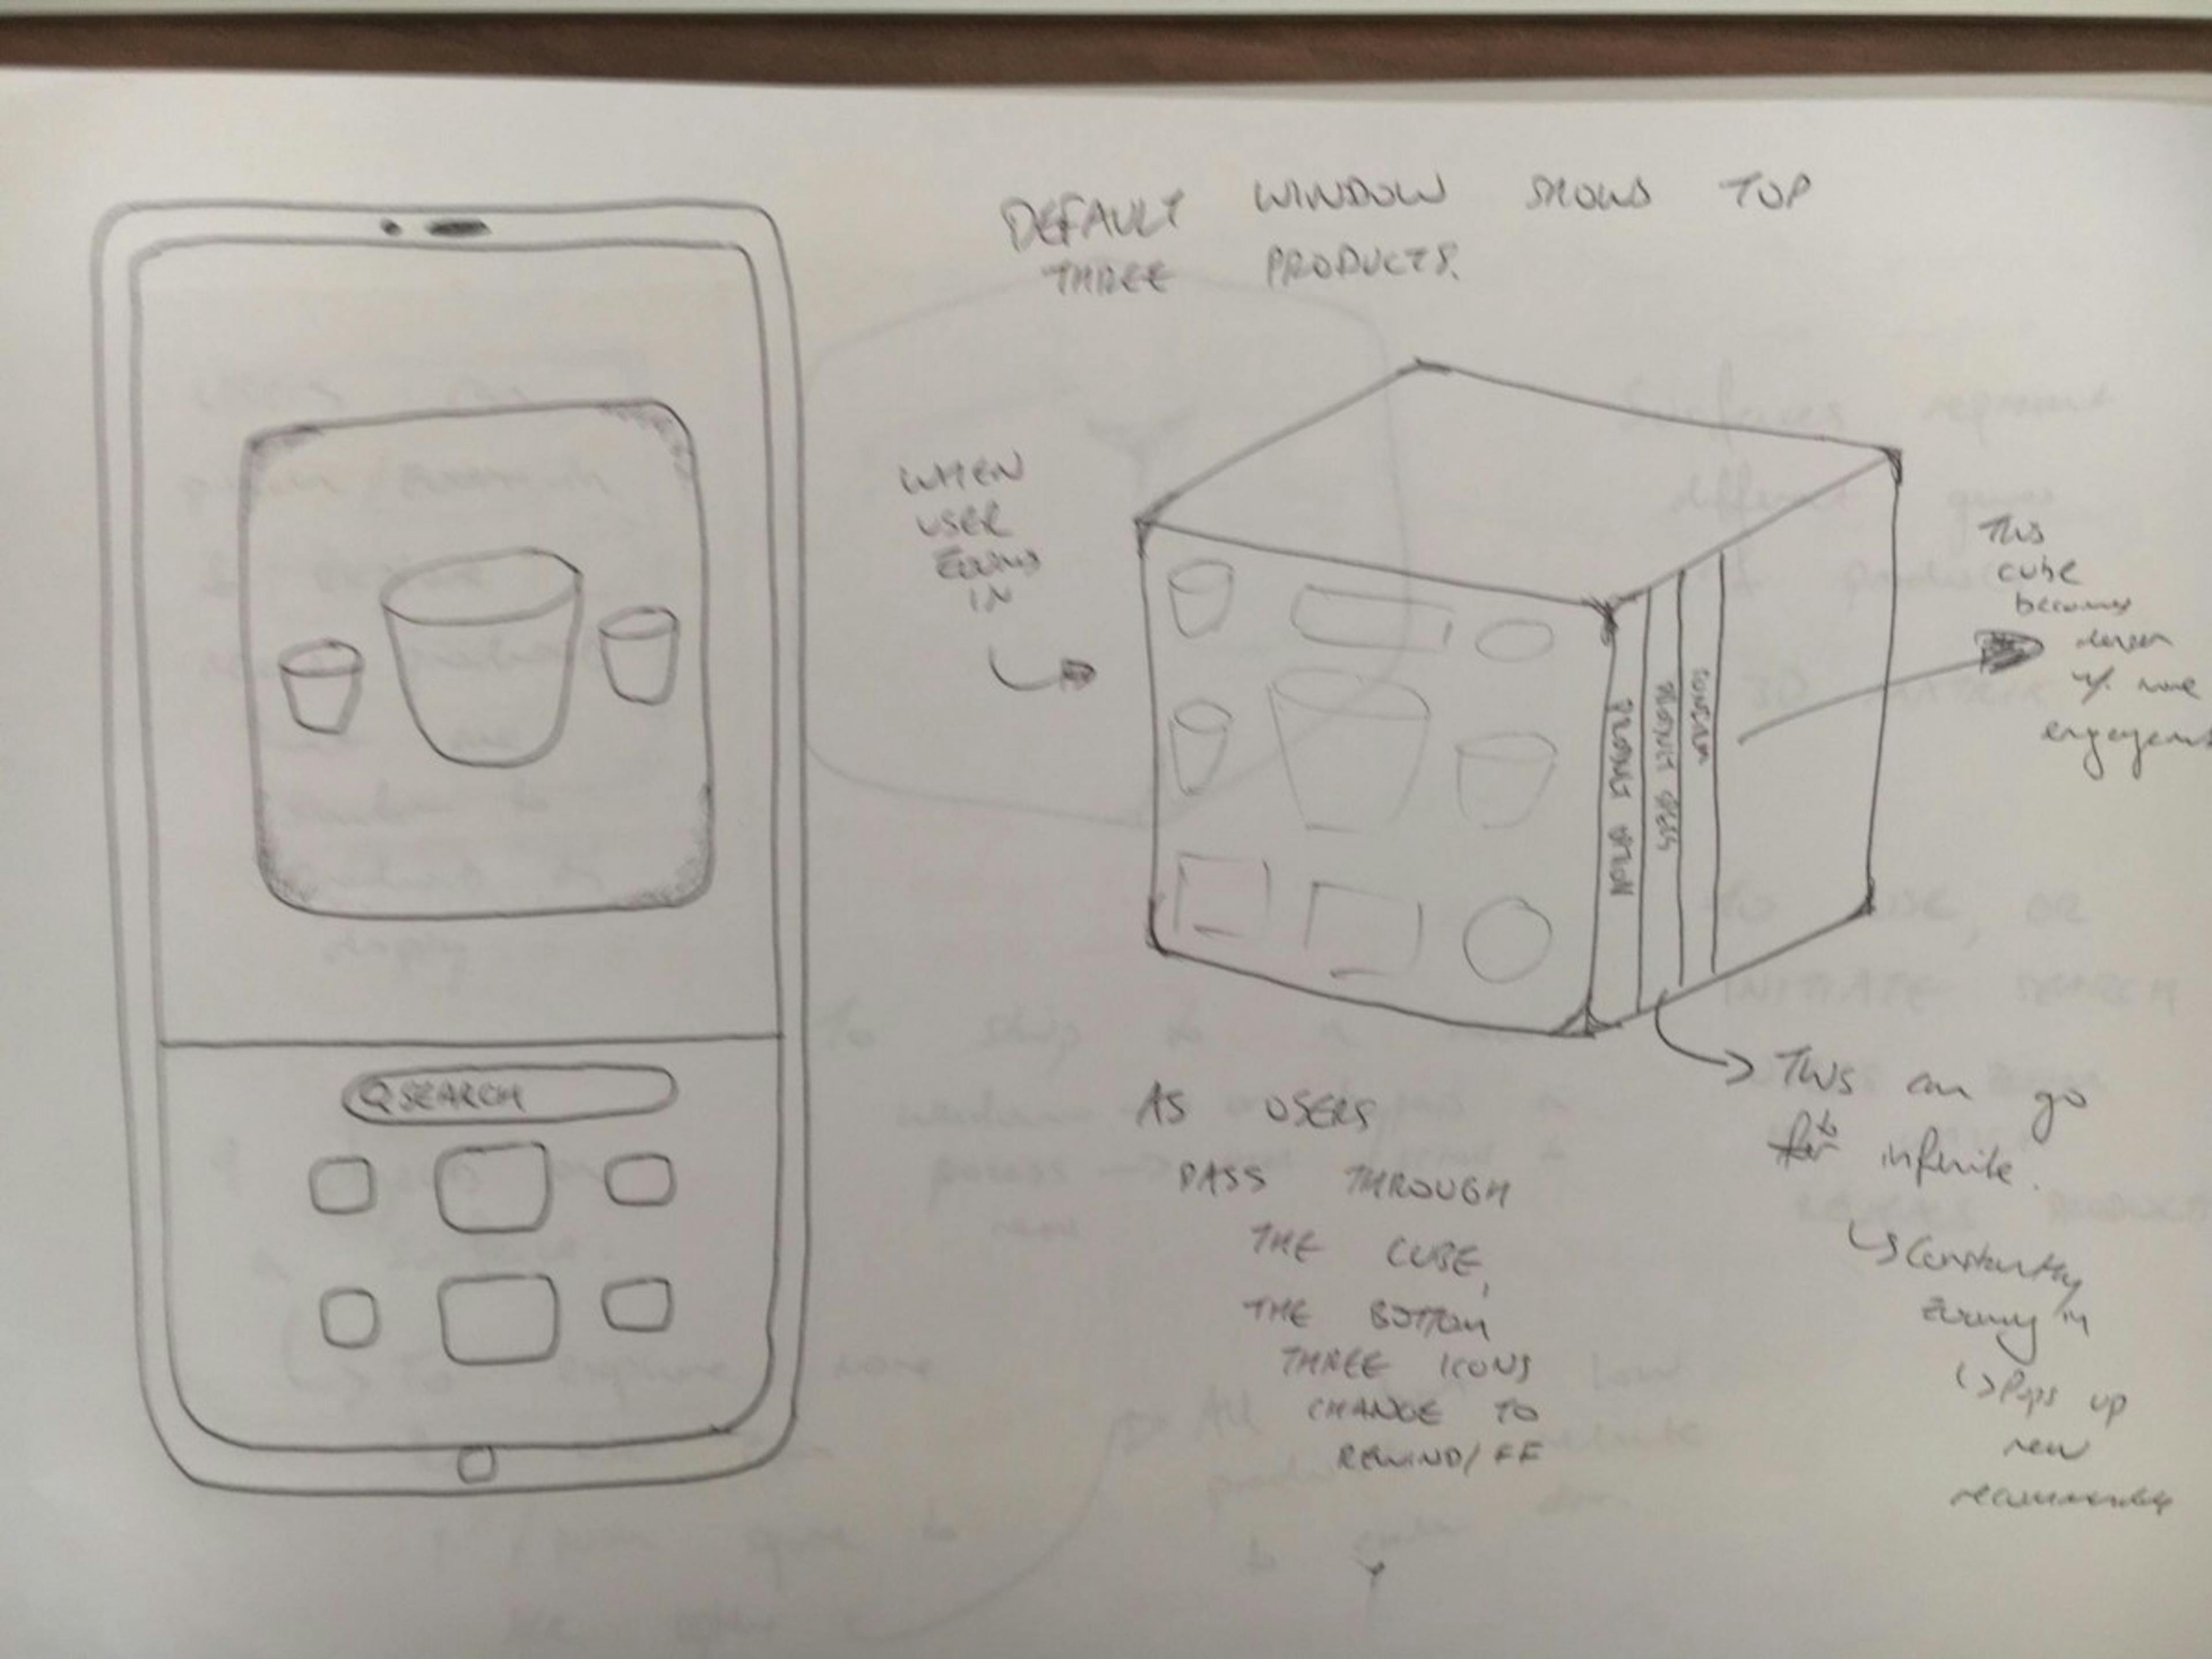 DEFAULT WINDOW SHOWS TOP
THREE PRODUCTS.
WHEN
USER
ZOOMS
IN
This
cube
becomes
denser
w/. more
SEARCH
PRODUCT
PRODUCT SPECS
AS USERS
PASS THROUGH
THE CUBE,
THE BOTTOM
THREE ICONS
CHANGE TO
REWIND/FF
This can go
to infinite.
Constantly
zooming in
Pops up
new